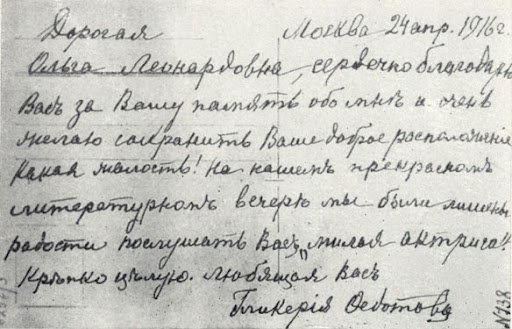 Дорогая Москва 24 апр. 1916 г.
Ольга Леонардовна, сердечно благодарю
Васъ за Вашу память обо мнѣ и очень
желаю сохранить Ваше доброе расположенье
Какая жалость! На нашемъ прекрасномъ
литературномъ вечерѣ мы были лишены
радости послушать Васъ, „милая актриса"!
Крѣпко цѣлую. Любящая Васъ
Гликерія Федотова
N738